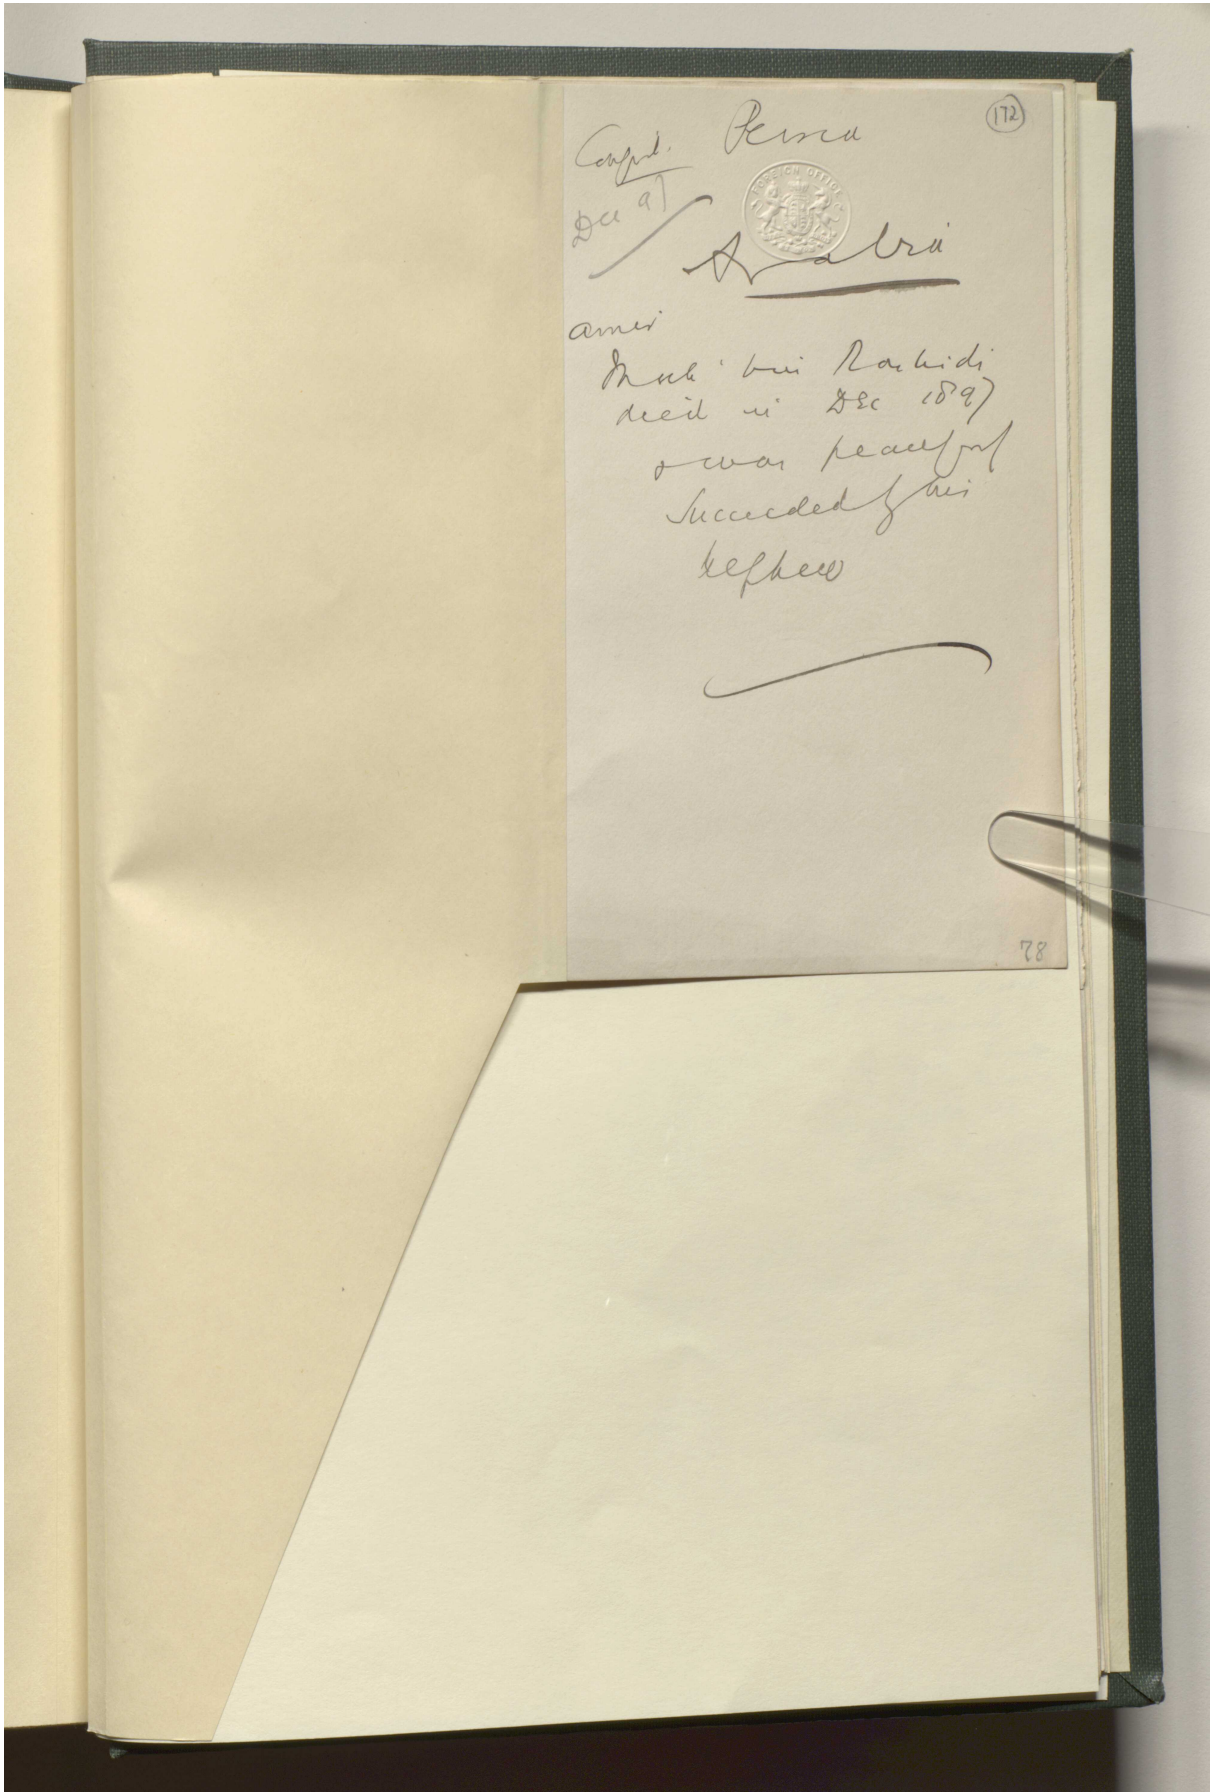 172
Persia
Confid.
Dec 97
FOREIGN OFFICE
Arabia
Amir
bin Rashidi
died in DEC 1897
& was peacefully
succeeded by his
nephew
78